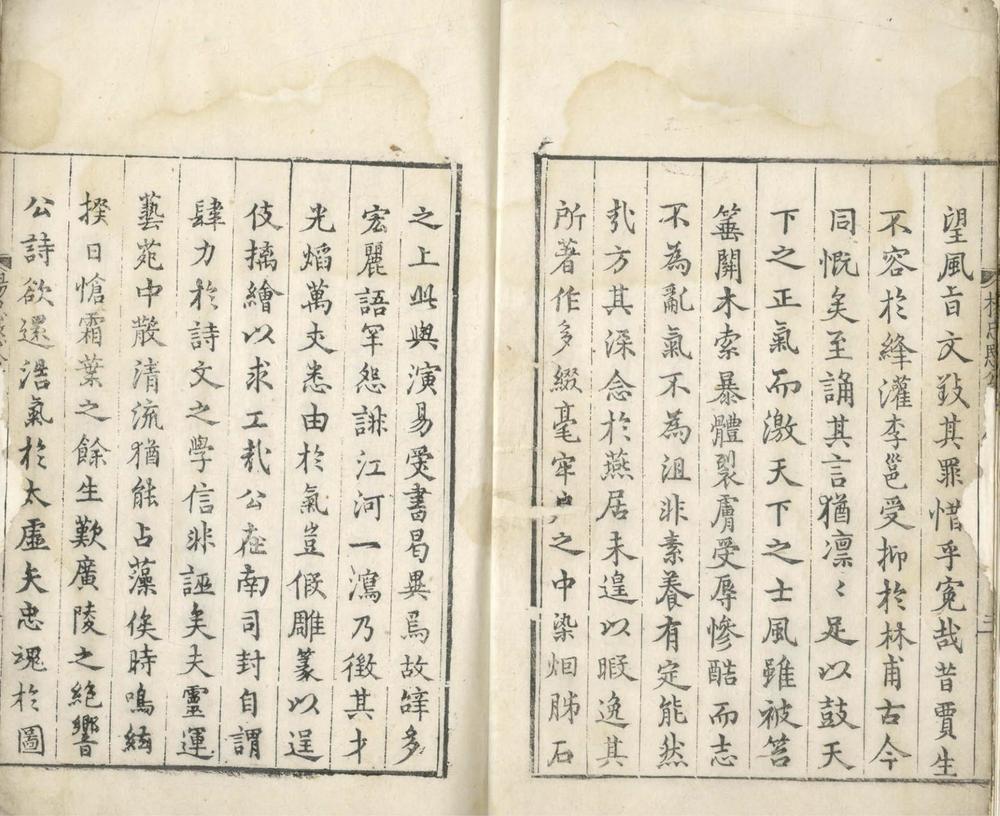 望風旨文致其罪惜乎寃哉昔賈生
不容於絳灌李邕受抑於林甫古今
同慨矣至誦其言猶凛〻足以鼓天
下之正氣而激天下之士風雖被笞
箠關木索暴體裂膚受辱慘酷而志
不為亂氣不為沮非素養有定能然
㢤方其深念於燕居未遑以暇逸其
所著作多綴毫牢戶之中染烟肺石
之上此與演易受書曷異焉故辭多
宏麗語罕怨誹江河一瀉乃徴其才
光熖萬丈悉由於氣豈假雕篆以逞
伎摛繪以求工㢤公在南司封自謂
肆力於詩文之學信非誣矣夫靈運
藝苑中散清流猶能占藻俟時鳴絃
揆日愴霜葉之餘生歎廣陵之絶響
公詩欲還浩氣於太虛矢忠魂於圖